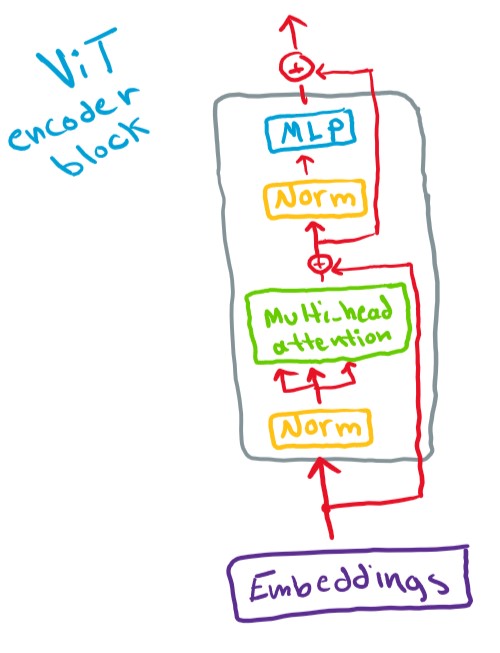 ViT
encoder
block
+
MLP
Norm
+
Multi-head
attention
Norm
Embeddings